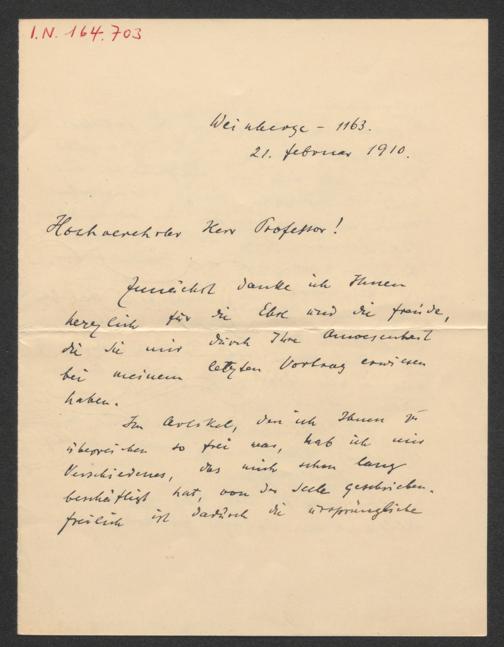 I.N. 164.703
Weinberge - 1163.
21. februar 1910.
Hochverehrter Herr Professor!
Zunächst danke ich Ihnen
herzlich für die Ehre und die freude,
die Sie mir durch Ihre Anwesenheit
bei meinem letzten Vortrag erwiesen
haben.
Im Artikel, den ich Ihnen zu
überreichen so frei war, hab ich mir
Verschiedenes, das mich schon lang
beschäftigt hat, von der Seele geschrieben.
freilich ist dadurch die ursprüngliche